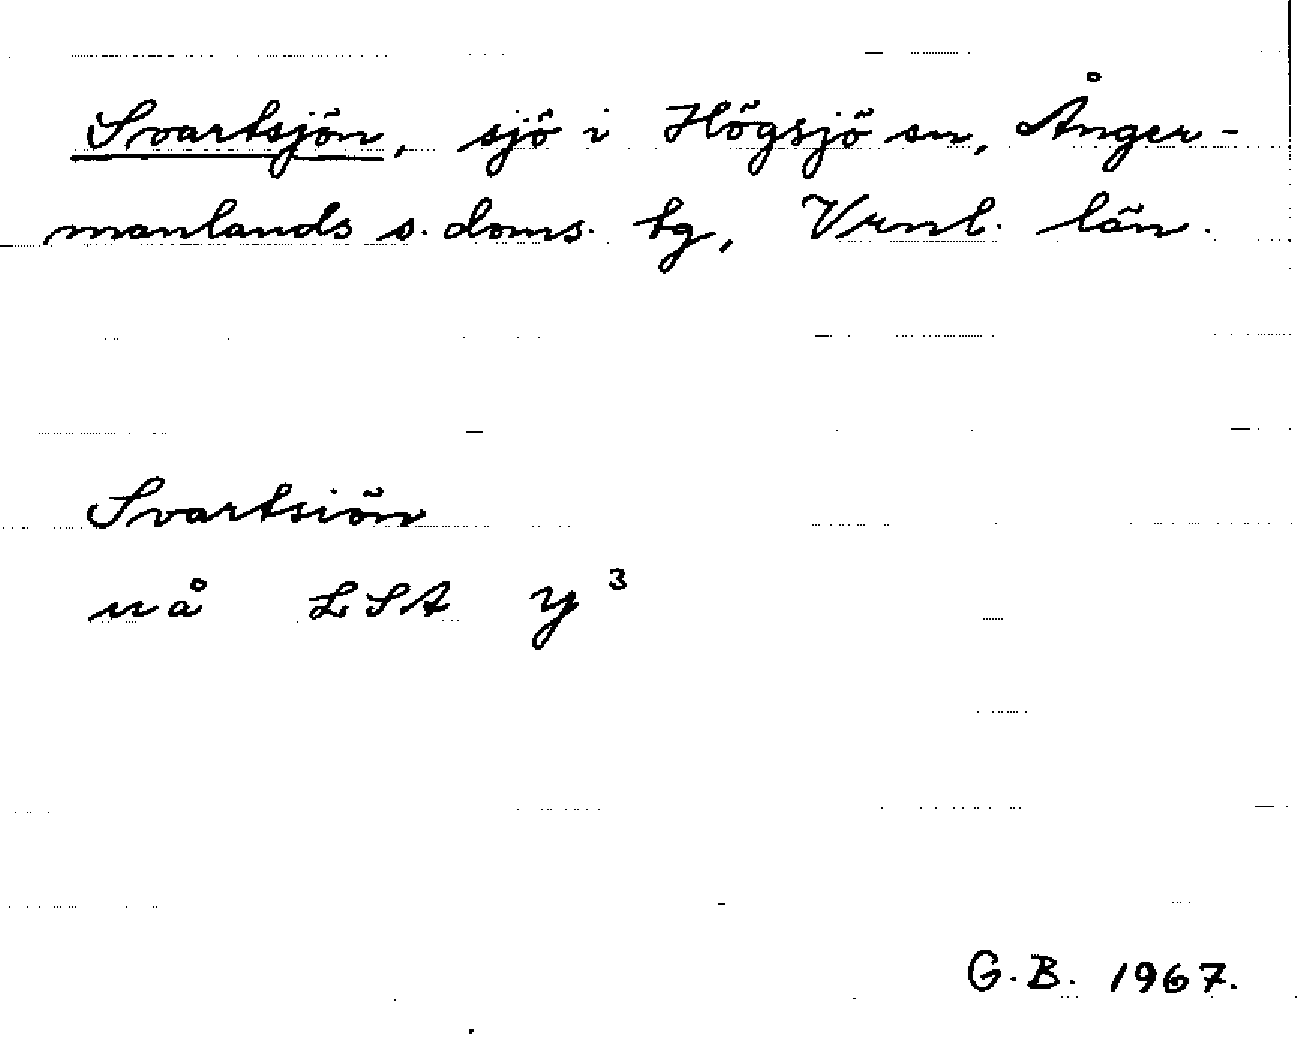 Svartsjön, sjö i Högsjö sn, Ånger-
manlands s. doms. tg, Vrnl. län.
Svartsiön
uå LSA Y³
G.B. 1967.